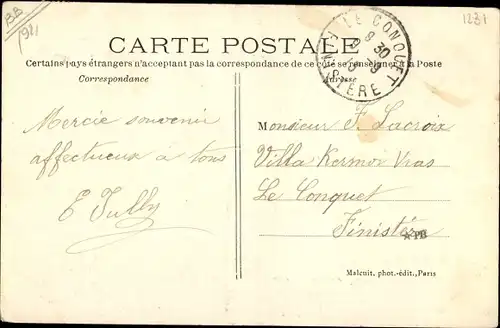 BB
1921
1231
CARTE POSTALE
Certains pays étrangers n'acceptant pas la correspondance de ce côté se renseigner à la Poste
Correspondance
Adresse
LE CONQUET
8 30
FINISTERE
Mercie souvenir
affectueux à tous
E Tully
Monsieur F. Lacroix
Villa Kermor Vras
Le Conquet
Finistère
PB
Malcuit, phot.-édit., Paris